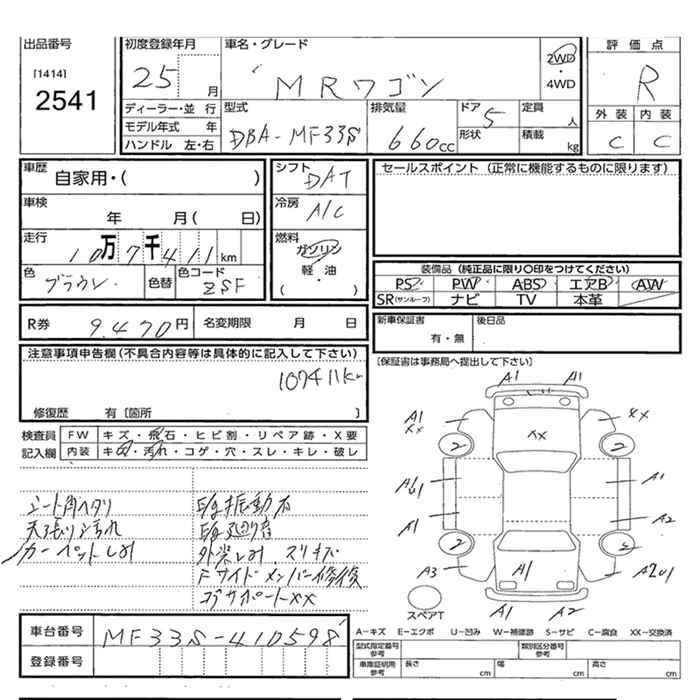 出品番号
[1414]
2541
初度登録年月
25 月
車名・グレード
MRワゴン
2WD
・
4WD
評価点
R
外装 内装
C C
ディーラー・並行
モデル年式 年
ハンドル 左・右
型式
DBA-MF33S
排気量
660cc
ドア 5
形状
定員 人
積載 kg
車歴
自家用・( )
車検
年 月( 日)
走行
10万7千411km
色 ブラウン
色替
色コード ZSF
シフト
DAT
冷房
A/C
燃料
ガソリン
・
軽・油
( )
セールスポイント (正常に機能するものに限ります)
装備品 (純正品に限り○印をつけてください)
PS PW ABS エアB AW
SR(サンルーフ) ナビ TV 本革
R券 9,470円
名変期限 月 日
新車保証書
有・無
後日品
[保証書は事務局へ提出して下さい]
注意事項申告欄(不具合内容等は具体的に記入して下さい)
107411km
修復歴 有[箇所 ]
検査員
記入欄
FW キズ・飛石・ヒビ割・リペア跡・X要
内装 キズ・汚れ・コゲ・穴・スレ・キレ・破レ
シート角ヘタリ
天張り汚れ
カーペットしみ
E/g振動有
E/g廻り音
外装しみ スリキズ
Fサイドメンバー修復
コアサポートXX
A1 A1
A1
XX
XX
XX
2 2
A1
A1
A1
A2
2 2
A3
A1 A2
スペアT
車台番号 MF33S-410598
登録番号
A-キズ E-エクボ U-凹み W-補修跡 S-サビ C-腐食 XX-交換済
型式指定番号
参考
類別区分番号
参考
車庫証明用
参考
長さ cm
幅 cm
高さ cm